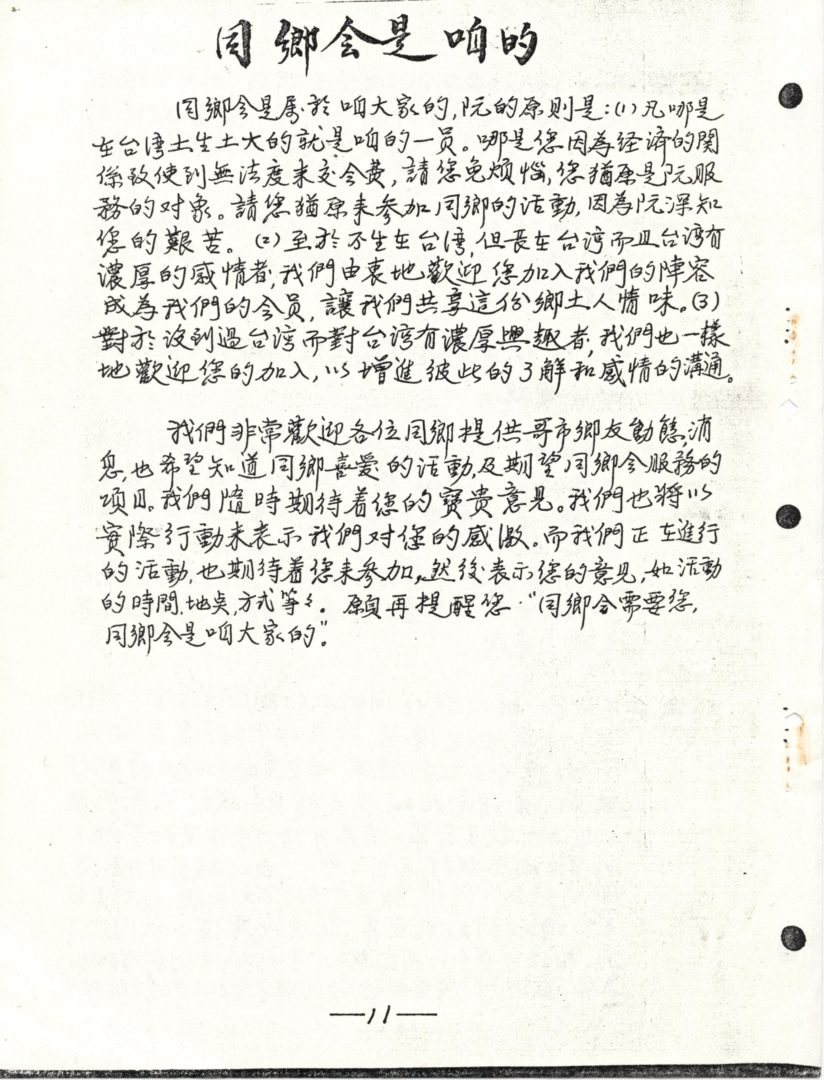 同鄉会是咱的
同鄉会是属於咱大家的,阮的原則是:(1)凡哪是
在台湾土生土大的就是咱的一员。哪是您因為经濟的関
係致使到無法度来交会费,請您免煩惱,您猶原是阮服
務的对象。請您猶原来参加同鄉的活動,因為阮深知
您的艱苦。(2)至於不生在台湾,但長在台湾而且台湾有
濃厚的感情者,我們由衷地歡迎您加入我們的陣容
成為我們的会员,讓我們共享這份鄉土人情味。(3)
對於沒到過台湾而對台湾有濃厚興趣者,我們也一樣
地歡迎您的加入,以增進彼此的了解和感情的溝通。
我們非常歡迎各位同鄉提供哥市鄉友動態,消
息,也希望知道同鄉喜爱的活動,及期望同鄉会服務的
項目。我們隨時期待着您的寶貴意見。我們也將以
實際行動来表示我們对您的感激。而我們正在進行
的活動,也期待着您来參加,然後表示您的意見,如活動
的時間,地点,方式等々。願再提醒您·"同鄉会需要您,
同鄉会是咱大家的"。
—11—